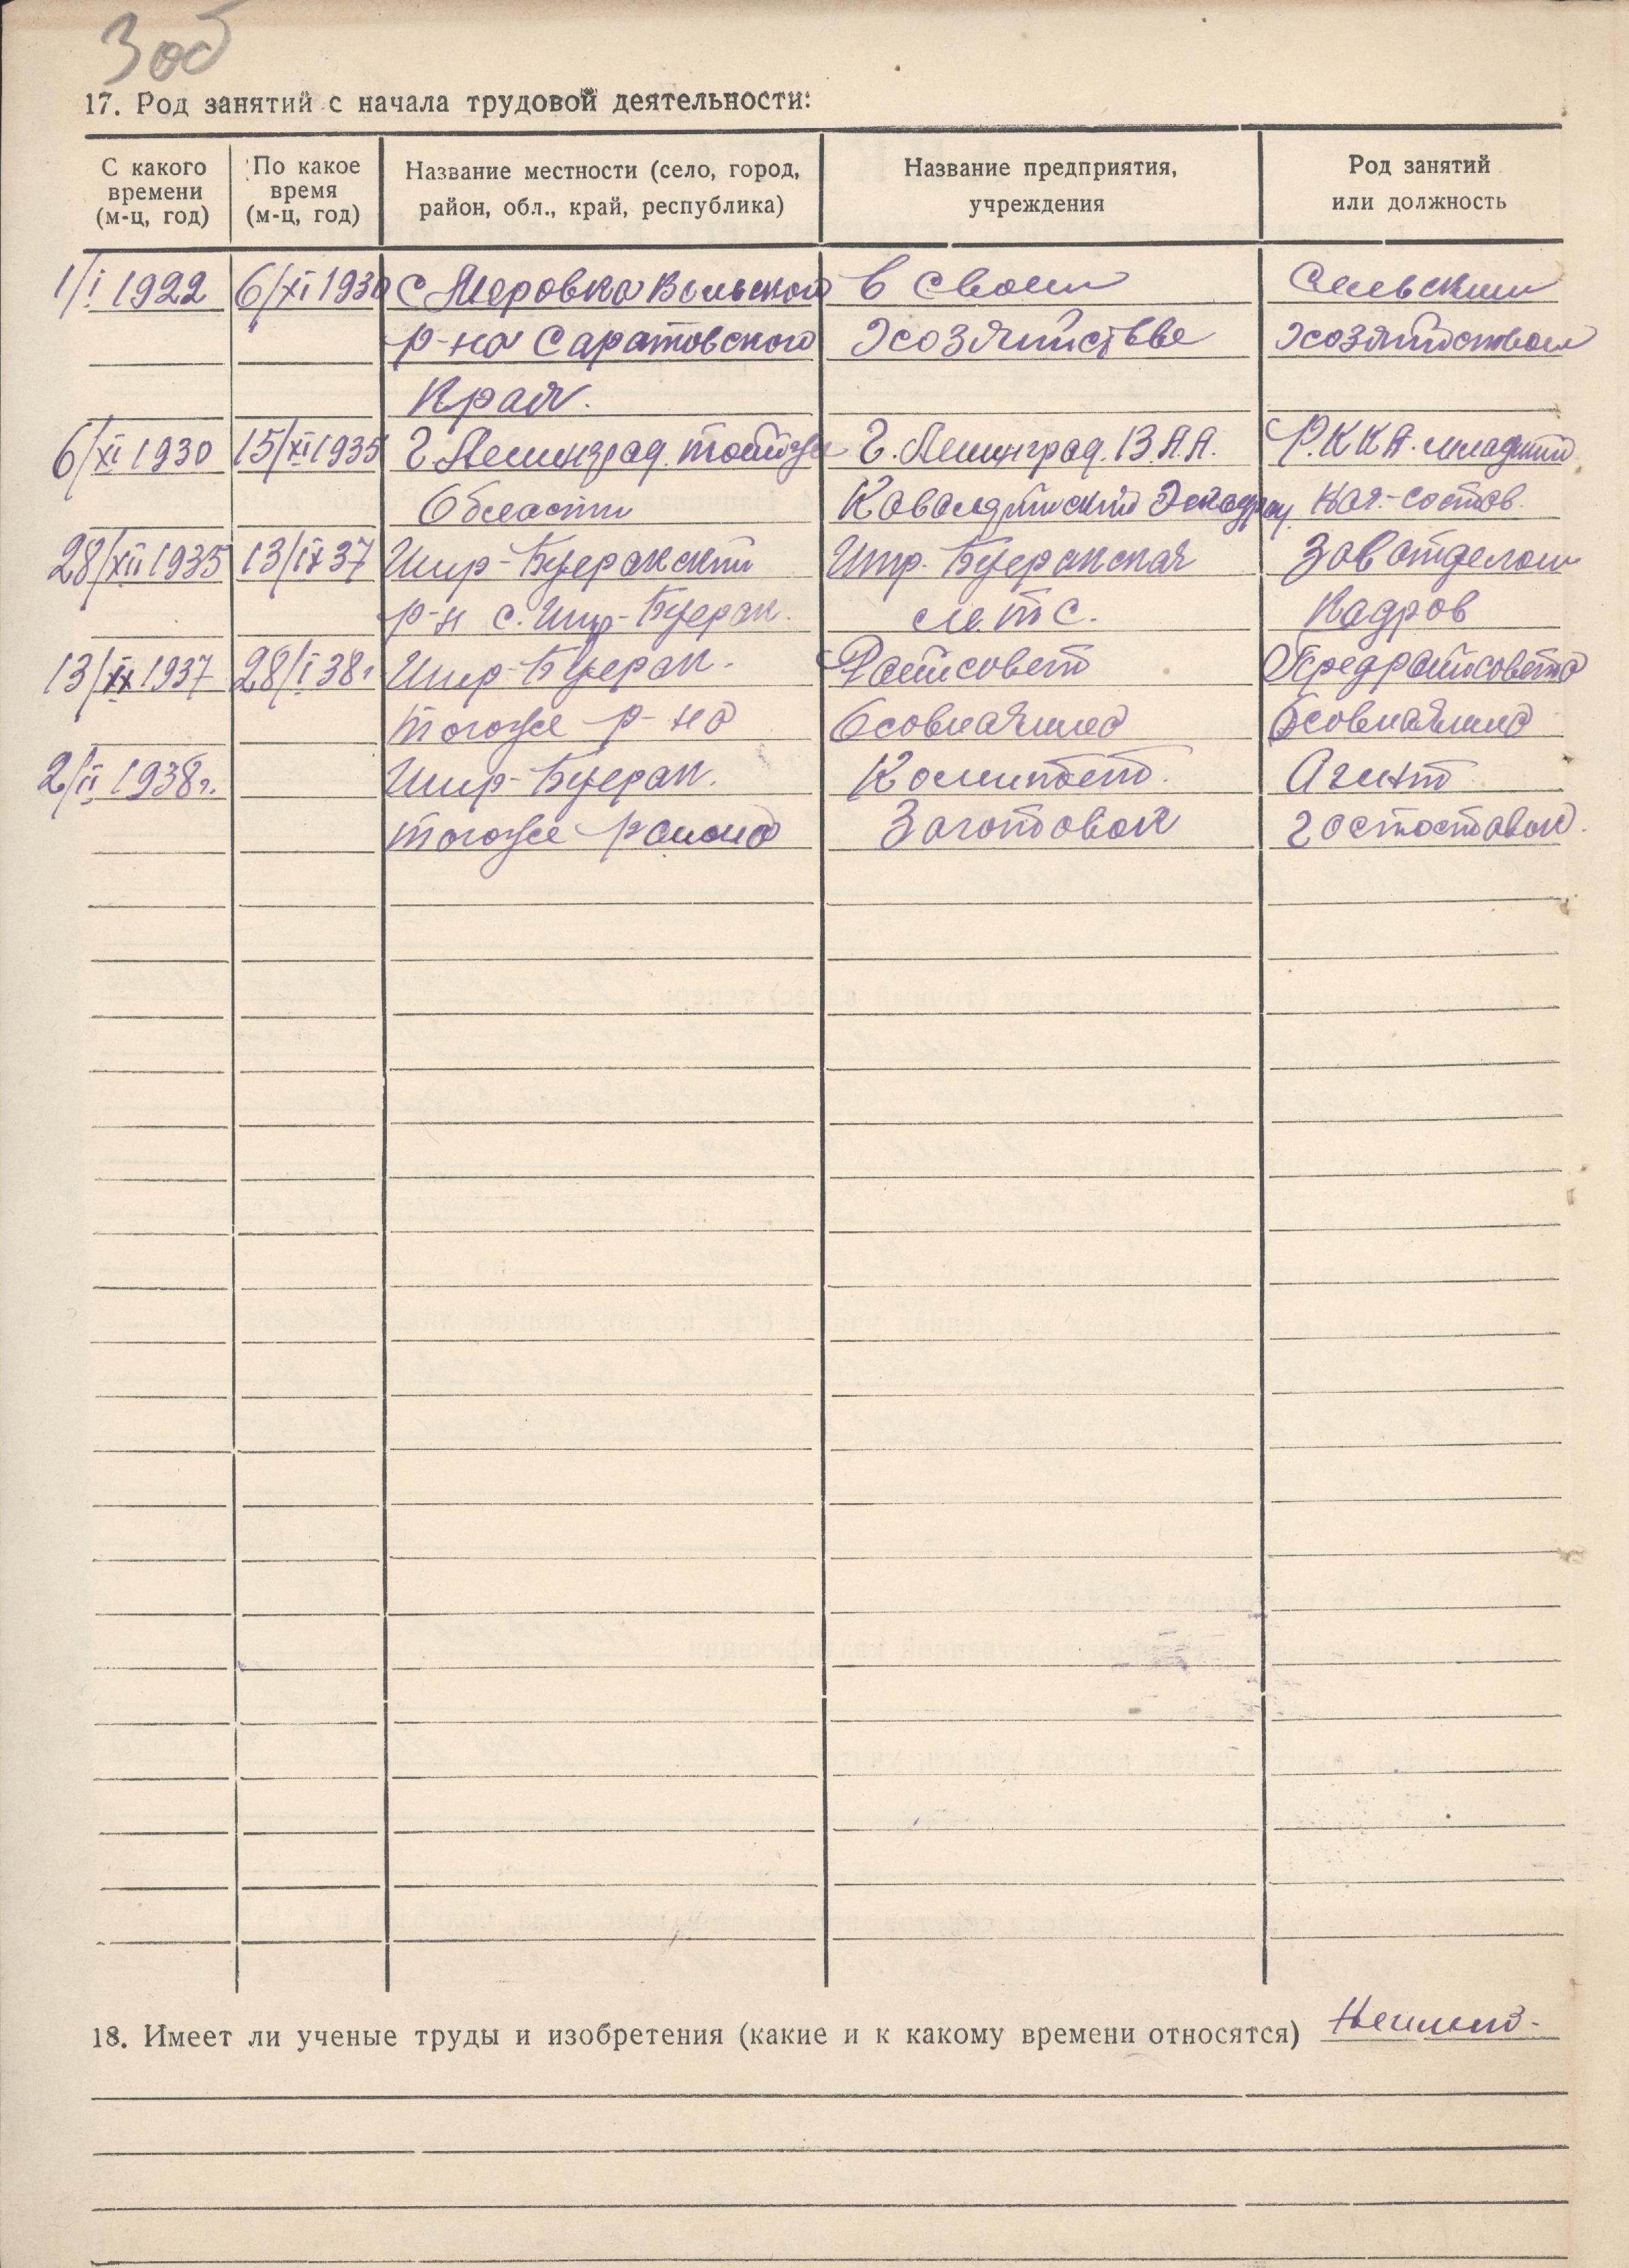 3об
17. Род занятий с начала трудовой деятельности:
С какого времени (м-ц, год) | По какое время (м-ц, год) | Название местности (село, город, район, обл., край, республика) | Название предприятия, учреждения | Род занятий или должность
1/I 1922 | 6/XI 1930 | с Меровка Вольского | в своем | Сельским
р-на Саратовского | хозяйстьве | хозяйством
Края.
6/XI 1930 | 15/XI 1935 | г. Ленинград. тойже | г. Ленинград. В.А.А. | Р.К.К.А. младший
Области | Кавалерийский Эскадрон | нач-состав.
28/XII 1935 | 13/IX 37 | Шир-Буеракский | Шир. Буеракская | Зав отделом
р-н с. Шир-Буерак. | м.т.с. | Кадров
13/IX 1937 | 28/I 38г | Шир-Буерак. | Райсовет | Предрайсовета
тогоже р-на | Осовиахима | Осовиахима
2/II 1938г. | Шир-Буерак. | Комитет. | Агент
тогоже раиона | Заготовок | госпоставок.
18. Имеет ли ученые труды и изобретения (какие и к какому времени относятся) Неимею-